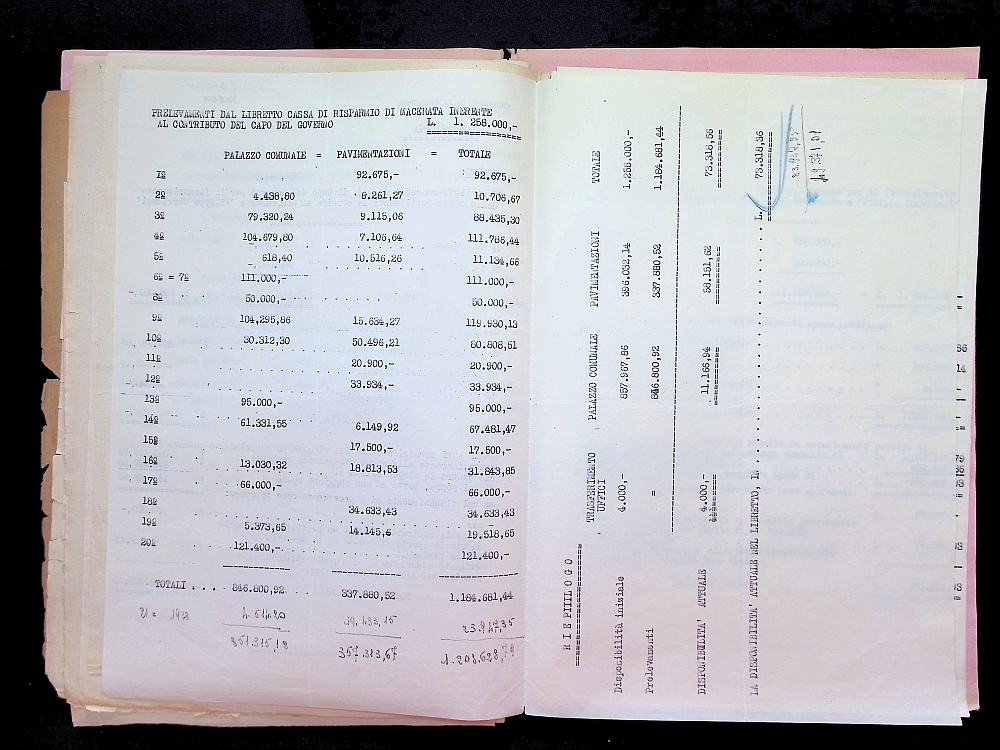 PRELEVAMENTI DAL LIBRETTO CASSA DI RISPARMIO DI MACERATA INERENTE
AL CONTRIBUTO DEL CAPO DEL GOVERNO L. 1. 258.000,-
PALAZZO COMUNALE = PAVIMENTAZIONI = TOTALE
1º 92.675,- 92.675,-
2º 4.438,80 6.261,27 10.706,67
3º 79.320,24 9.115,06 88.435,30
4º 104.679,80 7.106,64 111.786,44
5º 618,40 10.516,26 11.134,66
6º = 7º 111.000,- 111.000,-
8º 50.000,- 50.000,-
9º 104,295,86 15.634,27 119.930,13
10º 30.312,30 50.496,21 80.808,51
11º 20.900,- 20.900,-
12º 33.934,- 33.934,-
13º 95.000,- 95.000,-
14º 61.331,55 6.149,92 67.481,47
15º 17.500,- 17.500,-
16º 13.030,32 18.813,53 31.843,85
17º 66.000,- 66.000,-
18º 34.633,43 34.633,43
19º 5.373,65 14.145,6 19.518,65
20º 121.400,- 121.400,-
TOTALI .... 846.800,92 337.880,52 1.184.681,44
21 = 1938 4.514.20 19.433,15
351.315,12 357.313,67 1.208.628,79
R I E PIILOGO
TRASFERIMENTO PALAZZO COMUNALE PAVIMENTAZIONI TOTALE
UFFICI
Disponibilità iniziale 4.000,- 857.967,86 396.032,14 1.258.000,-
Prelevamenti = 846.800,92 337.880,52 1.184.681,44
DISPONIBILITA' ATTUALE 4.000,- 11.166,94 58.151,62 73.318,56
LA DISPONIBILITA' ATTUALE NEL LIBRETTO, IN L. 73.318,36